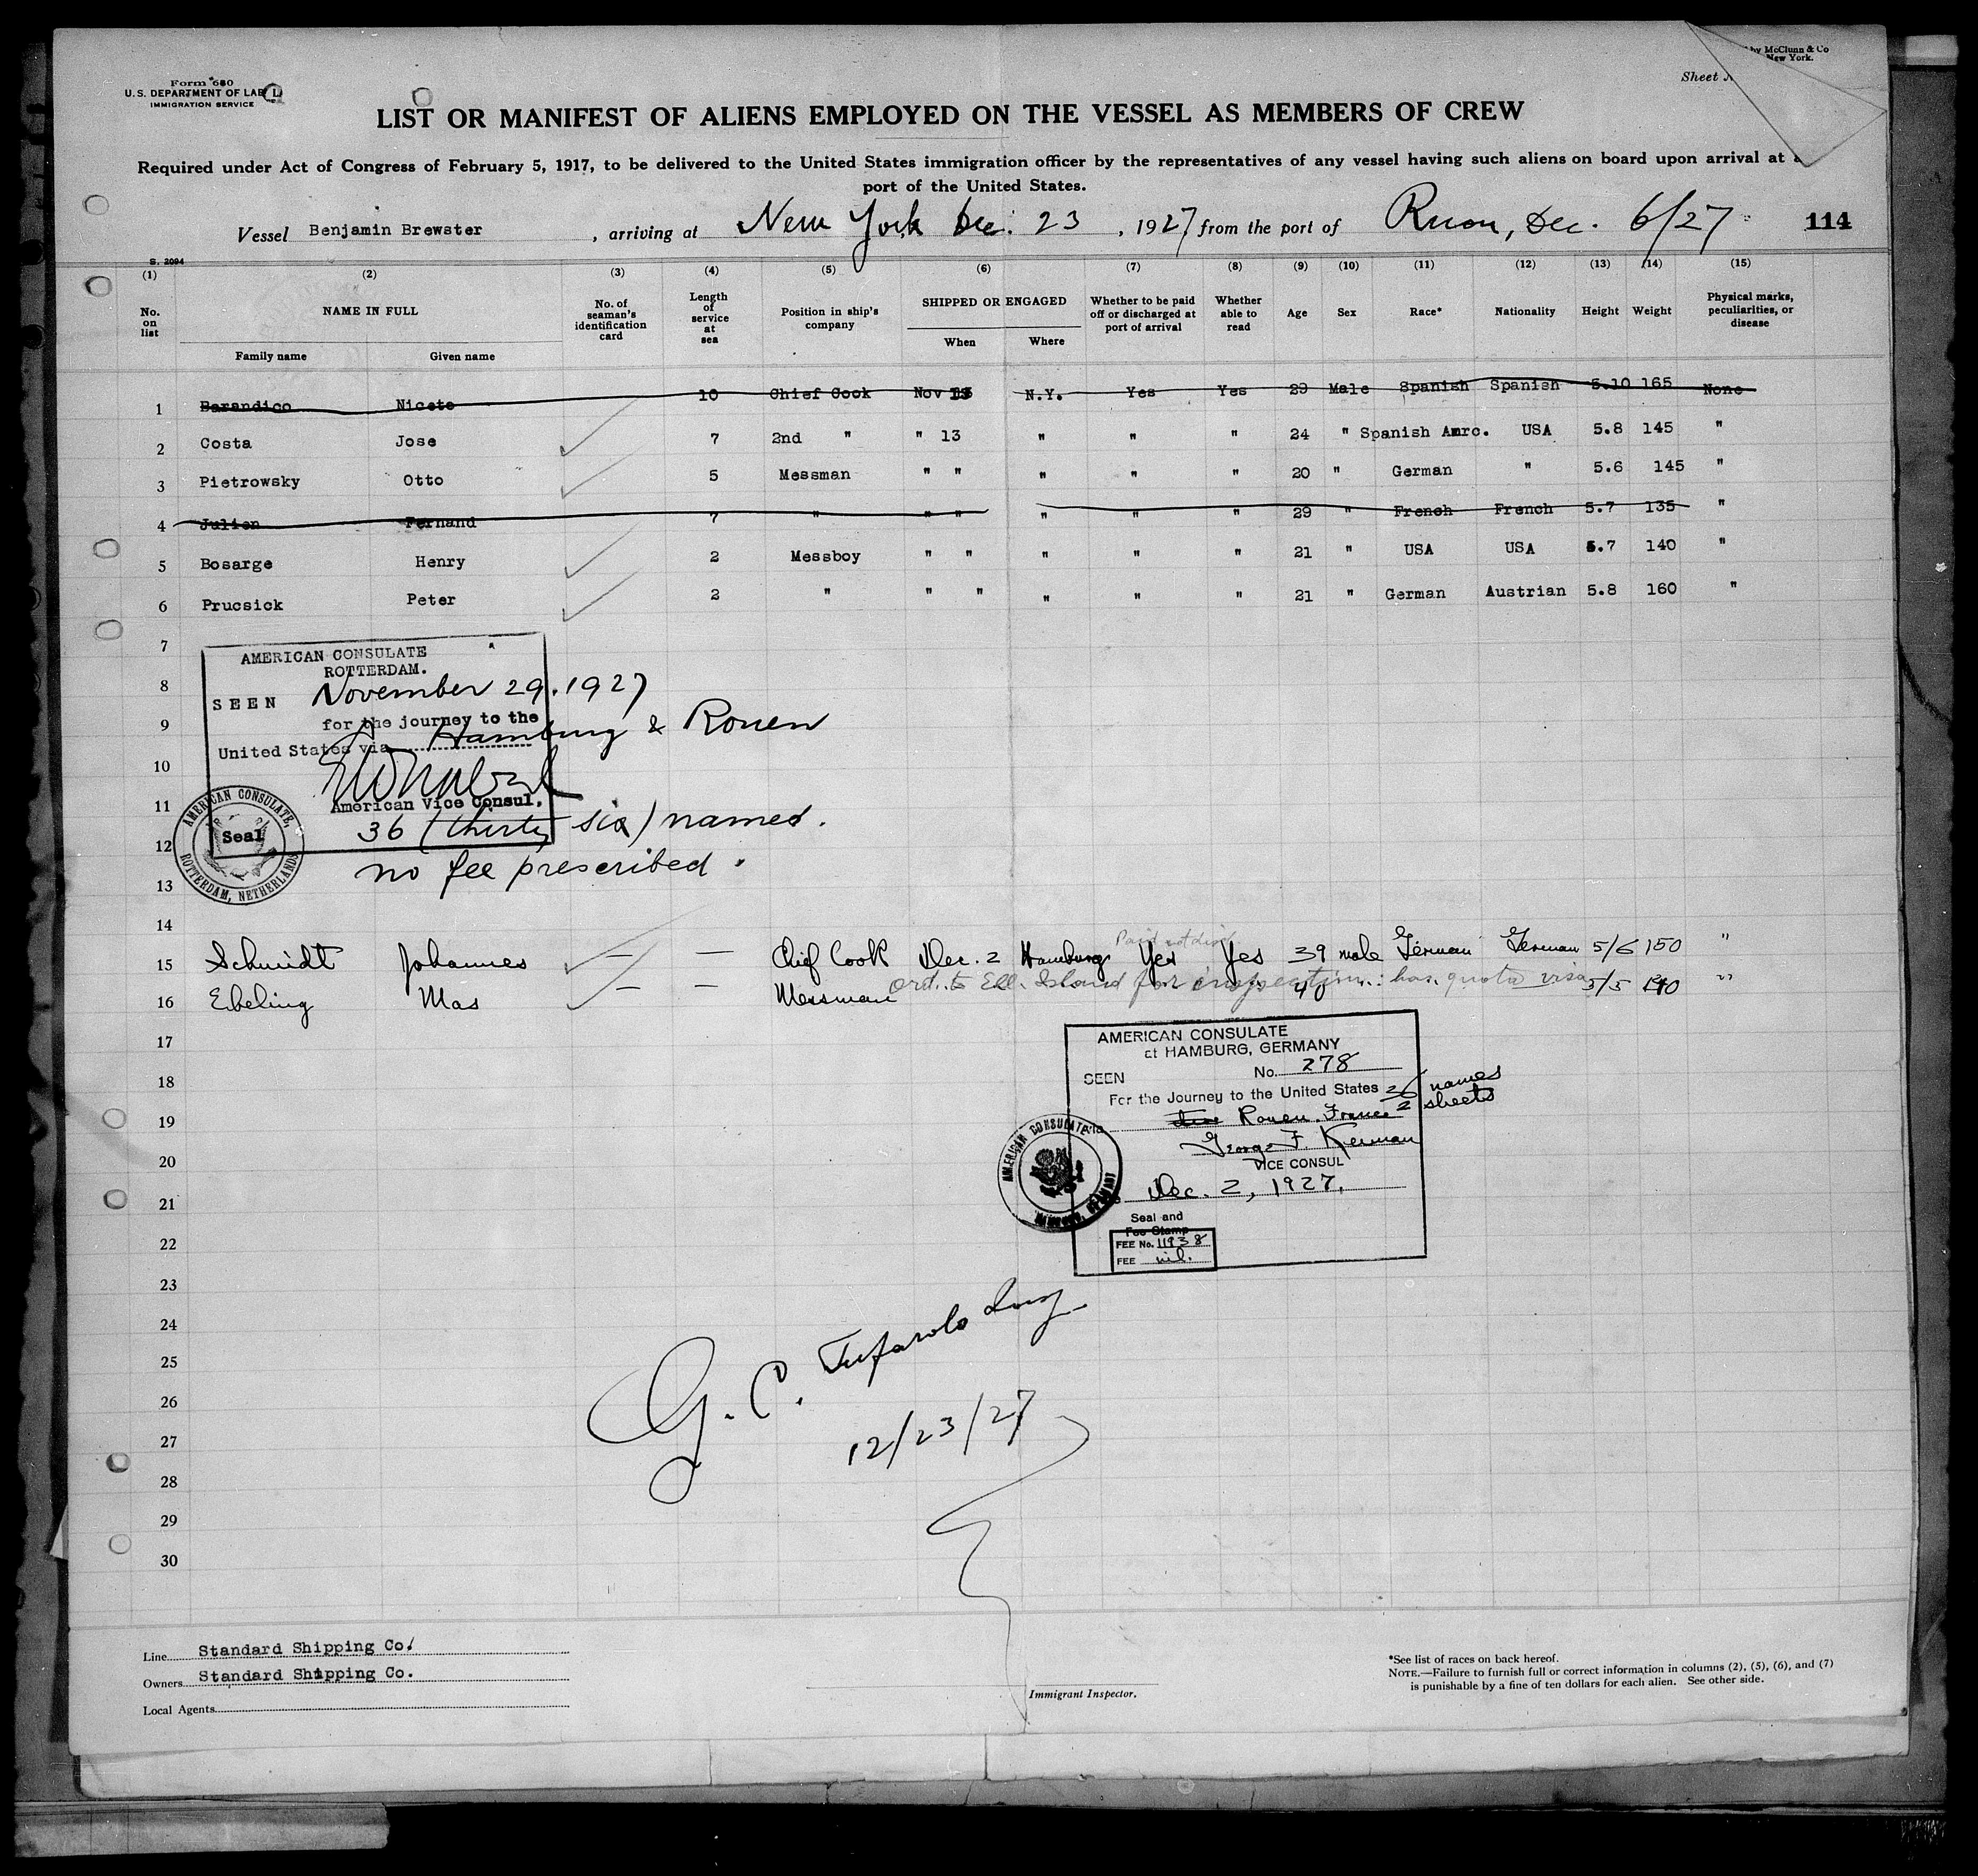 Form 680
U.S. DEPARTMENT OF LABOR
IMMIGRATION SERVICE
by McClunn & Co
New York.
Sheet
LIST OR MANIFEST OF ALIENS EMPLOYED ON THE VESSEL AS MEMBERS OF CREW
Required under Act of Congress of February 5, 1917, to be delivered to the United States immigration officer by the representatives of any vessel having such aliens on board upon arrival at a
port of the United States.
Vessel Benjamin Brewster, arriving at New York Dec. 23, 1927 from the port of Ruon, Dec. 6/27 114
S. 2094
(1) (2) (3) (4) (5) (6) (7) (8) (9) (10) (11) (12) (13) (14) (15)
No. on list NAME IN FULL No. of seaman's identification card Length of service at sea Position in ship's company SHIPPED OR ENGAGED Whether to be paid off or discharged at port of arrival Whether able to read Age Sex Race* Nationality Height Weight Physical marks, peculiarities, or disease
Family name Given name When Where
1 Barandico Niceto 10 Chief Cook Nov 13 N.Y. Yes Yes 29 Male Spanish Spanish 5.10 165 None
2 Costa Jose 7 2nd " " 13 " " " 24 " Spanish Amrc. USA 5.8 145 "
3 Pietrowsky Otto 5 Messman " " " " " 20 " German " 5.6 145 "
4 Julien Fernand 7 " " " " " " 29 " French French 5.7 135 "
5 Bosarge Henry 2 Messboy " " " " " 21 " USA USA 5.7 140 "
6 Prucsick Peter 2 " " " " " " 21 " German Austrian 5.8 160 "
7
AMERICAN CONSULATE
ROTTERDAM.
8
SEEN November 29, 1927
9
for the journey to the
United States via Hamburg & Rouen
10
American Vice Consul.
11
36 (thirty six) names.
12
no fee prescribed.
13
AMERICAN CONSULATE, ROTTERDAM, NETHERLANDS
Seal
14
Paid not disch
15 Schmidt Johannes — — Chief Cook Dec. 2 Hamburg Yes Yes 39 male German German 5/6 150 "
ord. to Ell. Island for inspection: has quota visa
16 Ebeling Mas — — Messman 40 5/5 140 "
17
AMERICAN CONSULATE
at HAMBURG, GERMANY
SEEN No. 278
18
For the Journey to the United States 36 names
2 sheets
19
via Rouen, France
George F. Kennan
20
VICE CONSUL
21
Dec. 2, 1927.
AMERICAN CONSULATE
22
Seal and
Fee Stamp
FEE No. 11938
FEE nil.
23
24
G. C. Tufarolo Insp
25
26
27
12/23/27
28
29
30
Line Standard Shipping Co.
Owners Standard Shipping Co.
Local Agents
Immigrant Inspector.
*See list of races on back hereof.
NOTE.—Failure to furnish full or correct information in columns (2), (5), (6), and (7)
is punishable by a fine of ten dollars for each alien. See other side.